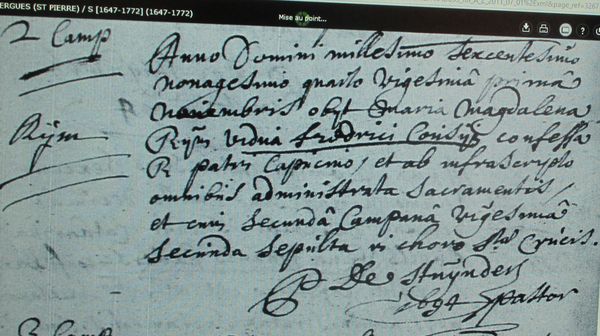 ERGUES (ST PIERRE) / S [1647-1772] (1647-1772)
Mise au point...
2 Camp
Anno Domini millesimo sexcentesimo
nonagesimo quarto vigesimâ primâ
novembris obyt Maria Magdalena
Rÿm
Rÿm vidua fredrici Consÿ confessa
R patri Capucino, et ab infrascripto
omnibus administrata sacramentis,
et cum secundâ Campanâ vigesimâ
secunda sepulta in choro Stæ Crucis.
P De Stuÿnder
1694 Pastor
3 Camp